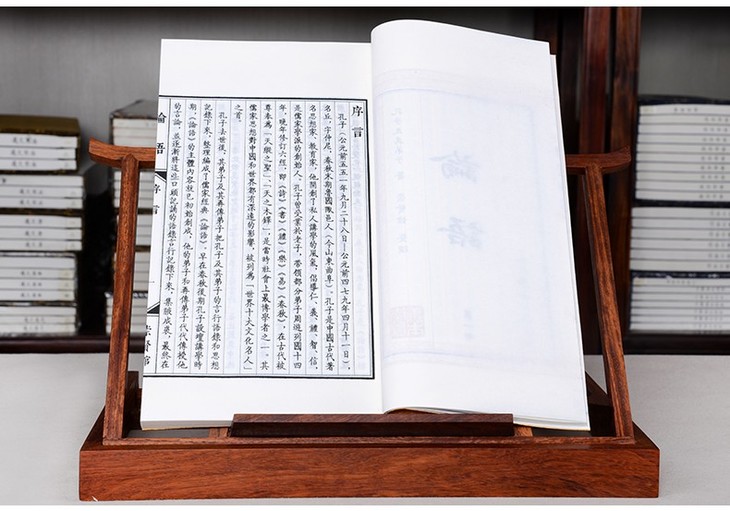 序言
孔子（公元前五五一年九月二十八日—公元前四七九年四月十一日），
名丘，字仲尼，春秋末期魯國陬邑人（今山東曲阜）。孔子是中國古代著
名思想家、教育家，他開創了私人講學的風氣，倡導仁、義、禮、智、信，
是儒家學派的創始人。孔子曾受業於老子，帶領部分弟子周遊列國十四
年，晚年修訂六經，即《詩》《書》《禮》《樂》《易》《春秋》，在古代被
尊奉為「天縱之聖」「天之木鐸」，是當時社會上最博學者之一。其
儒家思想對中國和世界都有深遠的影響，被列為「世界十大文化名人」
之首。
孔子去世後，其弟子及其再傳弟子把孔子及其弟子的言行語錄和思想
記錄下來，整理編成了儒家經典《論語》。早在春秋後期孔子設壇講學時
期，《論語》的主體內容就已初始創成，他的弟子和再傳弟子代代傳授他
的言論，並逐漸將這些口頭記誦的語錄言行記錄下來，集腋成裘，最終在
論語
序言
一
論語